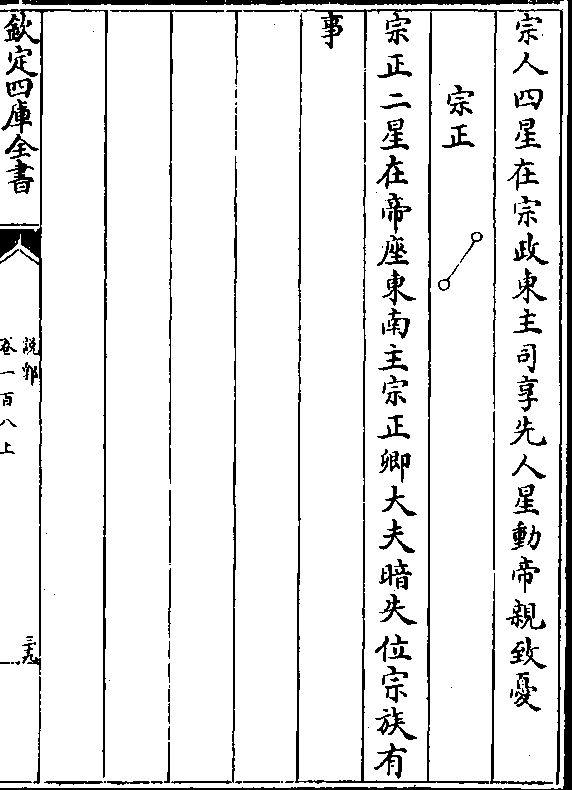 宗人四星在宗政東主司享先人星動帝親致憂
宗正
宗正二星在帝座東南主宗正卿大夫暗失位宗族有
事
欽定四庫全書
說郛
卷一百八上
三十九